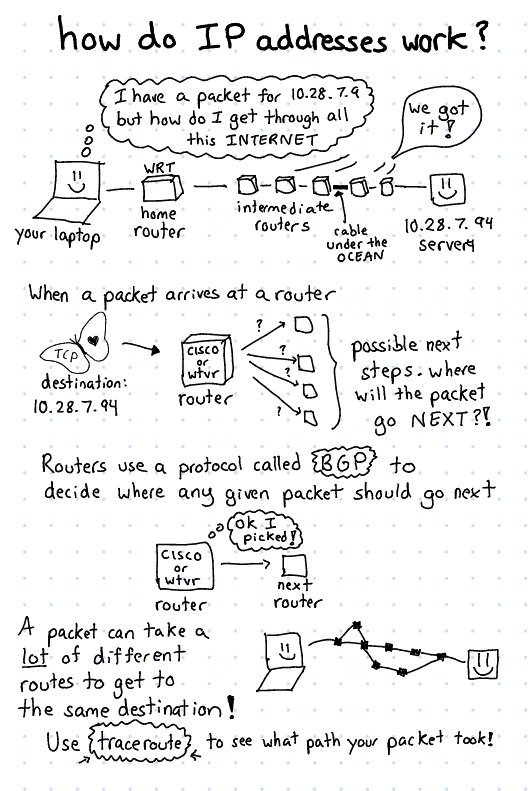 how do IP addresses work?
I have a packet for 10.28.7.9
but how do I get through all
this INTERNET
we got
it!
WRT
your laptop
home
router
intermediate
routers
cable
under the
OCEAN
10.28.7.94
server
When a packet arrives at a router
TCP
destination:
10.28.7.94
CISCO
or
wtvr
router
?
?
?
?
possible next
steps. where
will the packet
go NEXT?!
Routers use a protocol called BGP to
decide where any given packet should go next
ok I
picked!
CISCO
or
wtvr
router
next
router
A packet can take a
lot of different
routes to get to
the same destination!
Use traceroute to see what path your packet took!